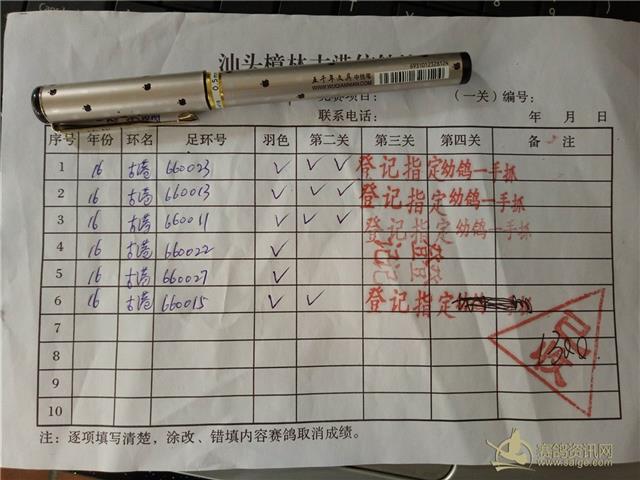 汕头樟林古港
五千年文具 中性笔
WWW.WUQIANNIAN.COM
0.5mm
6931012328524
竞赛项目： （一关）编号：
联系电话： 年 月 日
序号 年份 环名 足环号 羽色 第二关 第三关 第四关 备 注
1 16 古港 660023 ✓ ✓ ✓ 登记指定幼鸽一手抓
2 16 古港 660013 ✓ ✓ ✓ 登记指定幼鸽一手抓
3 16 古港 660011 ✓ ✓ ✓ 登记指定幼鸽一手抓
4 16 古港 660022 ✓ 登记 登记
5 16 古港 660027 ✓
6 16 古港 660015 ✓ ✓ 登记指定
7
8 1300
9
10
注：逐项填写清楚，涂改、错填内容赛鸽取消成绩。
赛鸽资讯网
www.saige.com